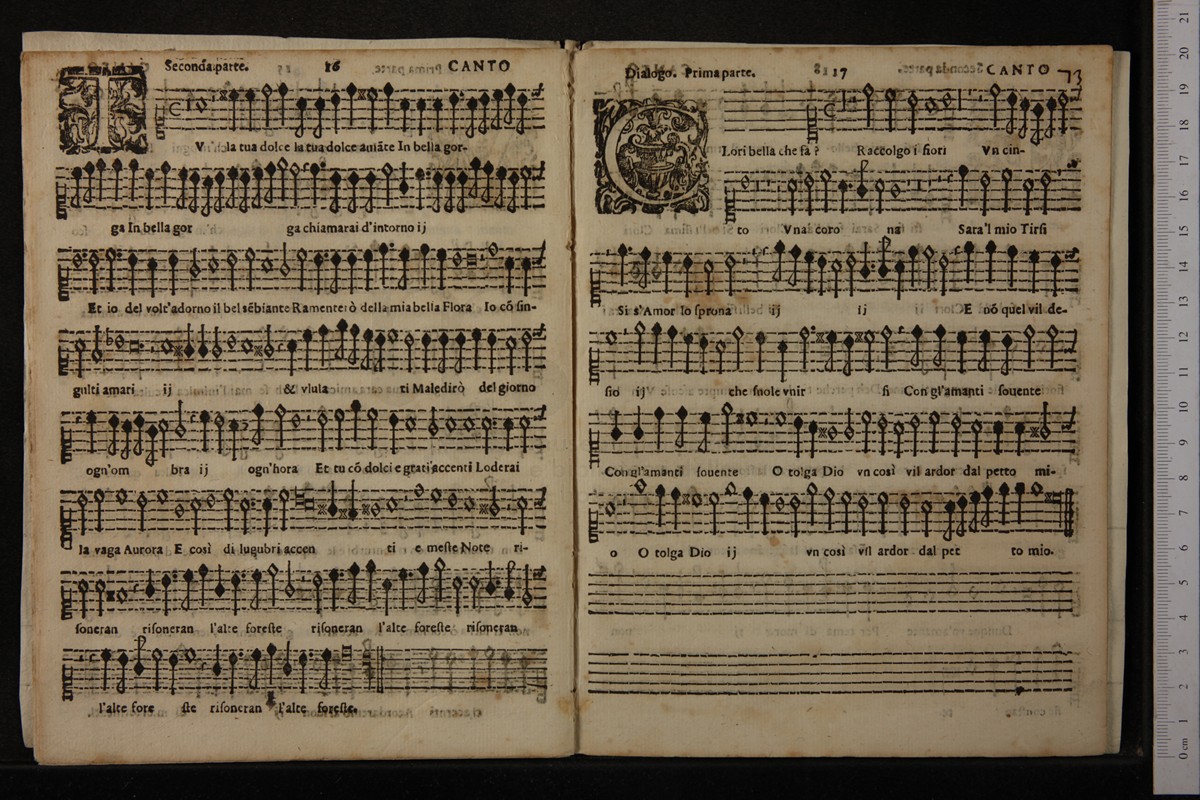 Seconda parte. 16 CANTO
T
V la tua dolce la tua dolce amāte In bella gor-
ga In bella gor ga chiamarai d'intorno ij
Et io del volt'adorno il bel sēbiante Ramenterò della mia bella Flora Io cō sin-
gulti amari ij & vlula ti Maledirò del giorno
ogn'om bra ij ogn'hora Et tu cō dolci e grati'accenti Loderai
la vaga Aurora E così di lugubri accen ti e meste Note ri-
soneran risoneran l'alte foreste risoneran l'alte foreste risoneran
l'alte fore ste risoneran l'alte foreste.
Dialogo. Prima parte. 17 CANTO 73
C
Lori bella che fa? Raccolgo i fiori Vn cin-
to Vna coro na Sara'l mio Tirsi
Si s'Amor lo sprona ij ij E nō quel vil de-
sio ij che suole vnir si Con gl'amanti souente
Con gl'amanti souente O tolga Dio vn così vil ardor dal petto mi-
o O tolga Dio ij vn così vil ardor dal pet to mio.
0 cm 1 2 3 4 5 6 7 8 9 10 11 12 13 14 15 16 17 18 19 20 21